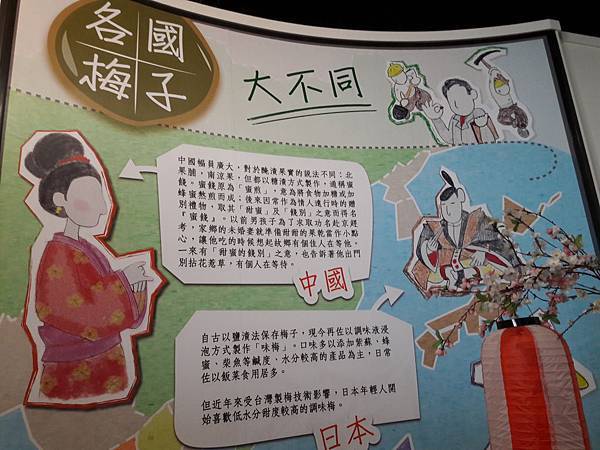 各國
梅子
大不同
中國幅員廣大，對於醃漬果實的說法不同：北
果脯，南涼果，但都以糖漬方式製作，通稱蜜
餞。蜜餞原為「蜜煎」，意為將食物加糖或加
蜂蜜熬煎而成；後來因常作為情人遠行時的贈
別禮物，取其「甜蜜」及「餞別」之意而得名
『蜜餞』。以前男孩子為了求取功名赴京趕
考，家鄉的未婚妻就準備甜甜的果乾當作小點
心，讓他吃的時候想起故鄉有個佳人在等他。
一來有「甜蜜的餞別」之意，也告訴著他出門
別拈花惹草，有個人在等待。
中國
自古以鹽漬法保存梅子，現今再佐以調味液浸
泡方式製作「味梅」。口味多以添加紫蘇、蜂
蜜、柴魚等鹹度、水分較高的產品為主，日常
佐以飯菜食用居多。
但近年來受台灣製梅技術影響，日本年輕人開
始喜歡低水分甜度較高的調味梅。
日本